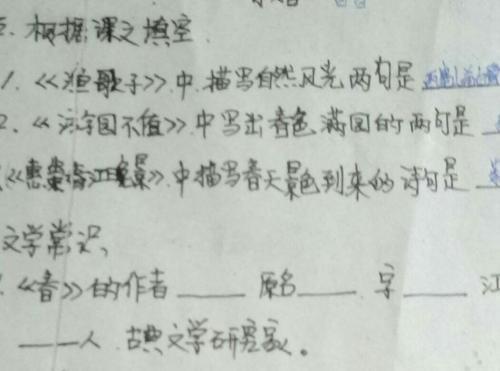 根据课文填空
1.《渔歌子》中描写自然风光两句是 西塞山前白鹭
2.《游园不值》中写出春色满园的两句是
《惠崇春江晚景》中描写春天景色到来的诗句是
文学常识
《春》的作者____原名____字____江
____人.古典文学研究家。